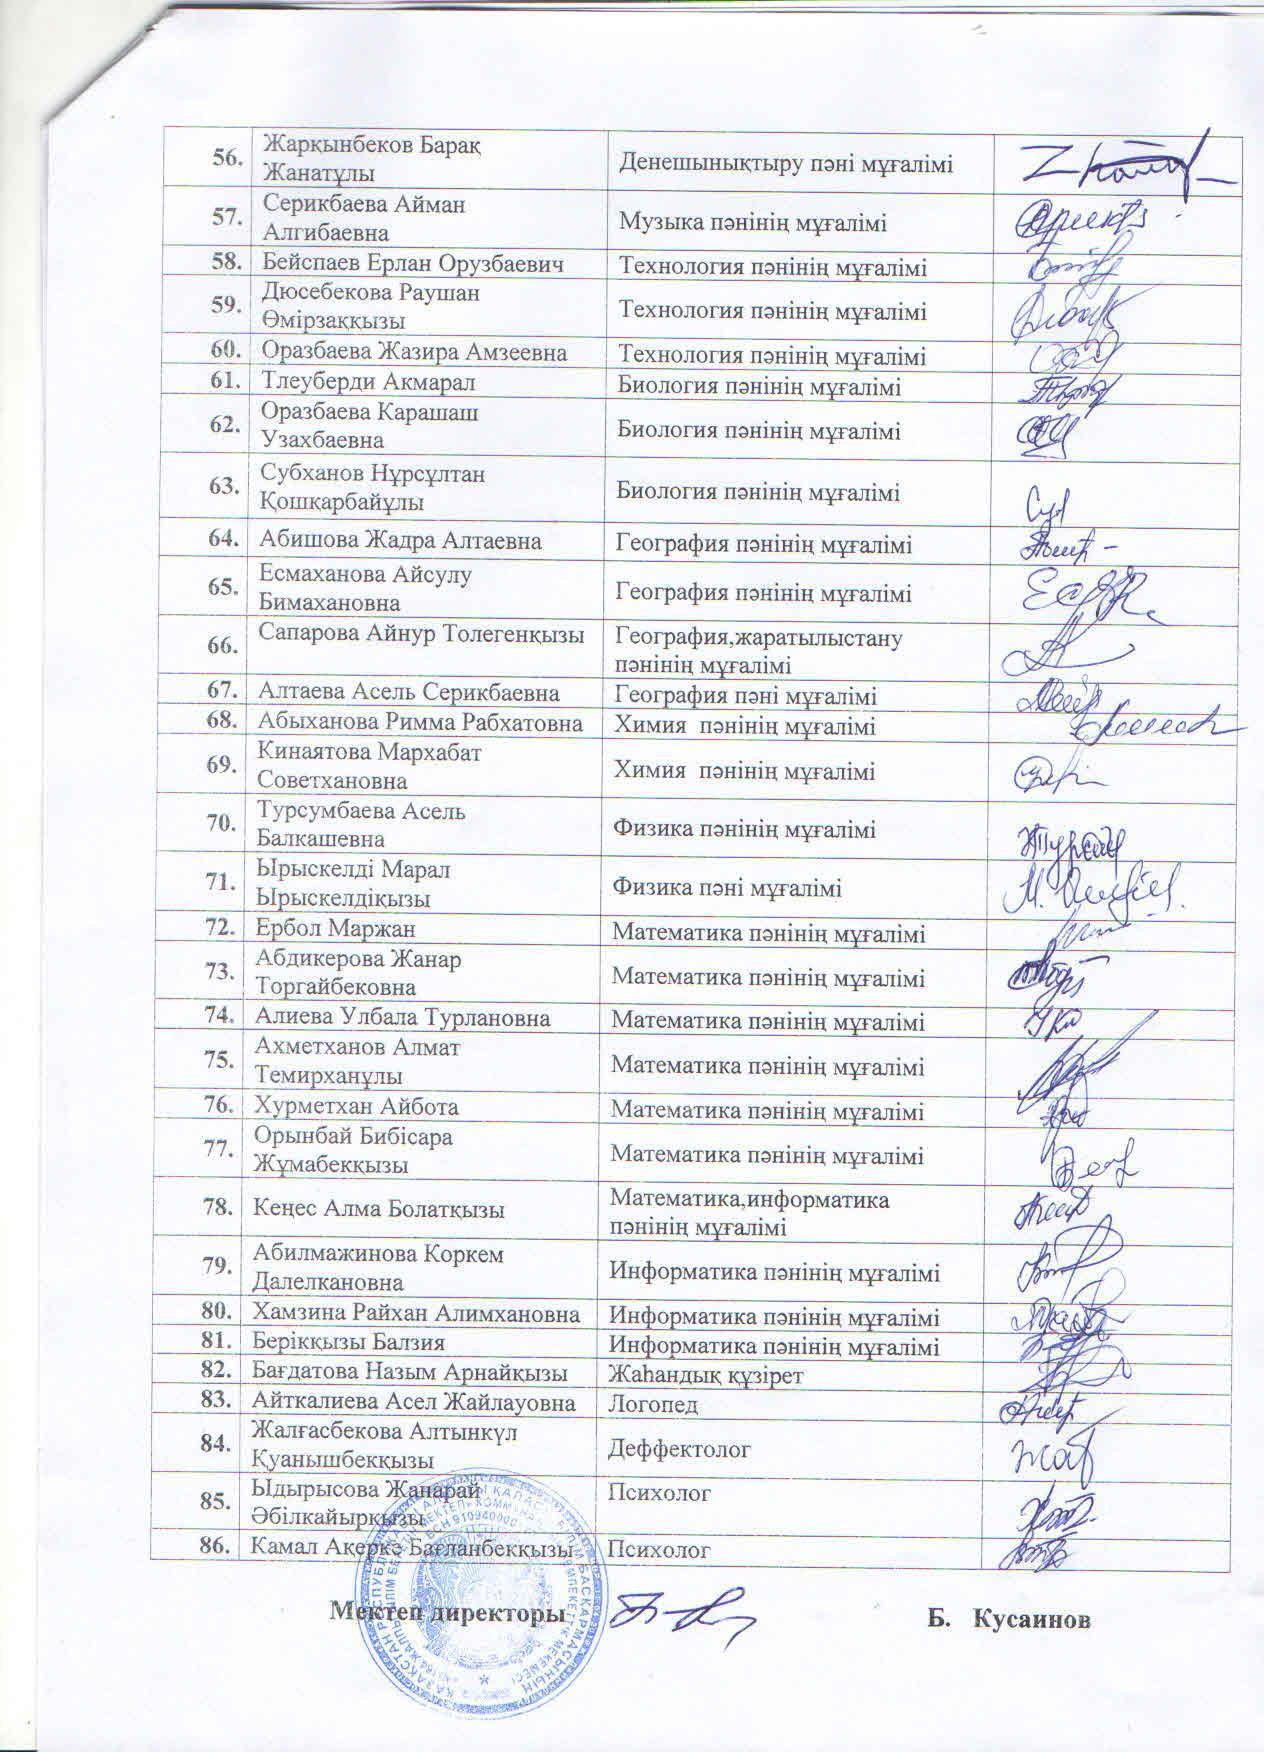 56. Жарқынбеков Барақ
Жанатұлы
Денешынықтыру пәні мұғалімі
57. Серикбаева Айман
Алгибаевна
Музыка пәнінің мұғалімі
58. Бейспаев Ерлан Орузбаевич Технология пәнінің мұғалімі
59. Дюсебекова Раушан
Өмірзаққызы
Технология пәнінің мұғалімі
60. Оразбаева Жазира Амзеевна Технология пәнінің мұғалімі
61. Тлеуберди Акмарал Биология пәнінің мұғалімі
62. Оразбаева Карашаш
Узахбаевна
Биология пәнінің мұғалімі
63. Субханов Нұрсұлтан
Қошқарбайұлы
Биология пәнінің мұғалімі
64. Абишова Жадра Алтаевна География пәнінің мұғалімі
65. Есмаханова Айсулу
Бимахановна
География пәнінің мұғалімі
66. Сапарова Айнур Толегенқызы География,жаратылыстану
пәнінің мұғалімі
67. Алтаева Асель Серикбаевна География пәні мұғалімі
68. Абыханова Римма Рабхатовна Химия пәнінің мұғалімі
69. Кинаятова Мархабат
Советхановна
Химия пәнінің мұғалімі
70. Турсумбаева Асель
Балкашевна
Физика пәнінің мұғалімі
71. Ырыскелді Марал
Ырыскелдіқызы
Физика пәні мұғалімі
72. Ербол Маржан Математика пәнінің мұғалімі
73. Абдикерова Жанар
Торгайбековна
Математика пәнінің мұғалімі
74. Алиева Улбала Турлановна Математика пәнінің мұғалімі
75. Ахметханов Алмат
Темирханұлы
Математика пәнінің мұғалімі
76. Хурметхан Айбота Математика пәнінің мұғалімі
77. Орынбай Бибісара
Жұмабекқызы
Математика пәнінің мұғалімі
78. Кеңес Алма Болатқызы Математика,информатика
пәнінің мұғалімі
79. Абилмажинова Коркем
Далелкановна
Информатика пәнінің мұғалімі
80. Хамзина Райхан Алимхановна Информатика пәнінің мұғалімі
81. Берікқызы Балзия Информатика пәнінің мұғалімі
82. Бағдатова Назым Арнайқызы Жаһандық құзірет
83. Айткалиева Асел Жайлауовна Логопед
84. Жалғасбекова Алтынкүл
Қуанышбекқызы
Деффектолог
85. Ыдырысова Жанарай
Әбілкайырқызы
Психолог
86. Камал Ақерке Бағланбекқызы Психолог
Мектеп директоры Б. Кусаинов